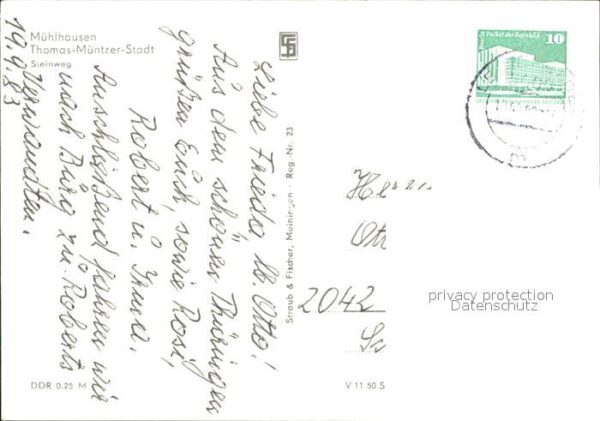 Mühlhausen
Thomas-Müntzer-Stadt
Steinweg
19.9.83
Liebe Frieda, lb. Otto!
Aus dem schönen Thüringen
grüßen Euch, sowie Rosi,
Robert u. Irma.
Anschließend fahren wir
nach Burg zu Roberts
Verwandten.
DDR 0,25 M
V 11 50 S
Straub & Fischer, Meiningen · Reg.-Nr. 23
Berlin Palast der Republik
10
Herrn
2042
privacy protection
Datenschutz